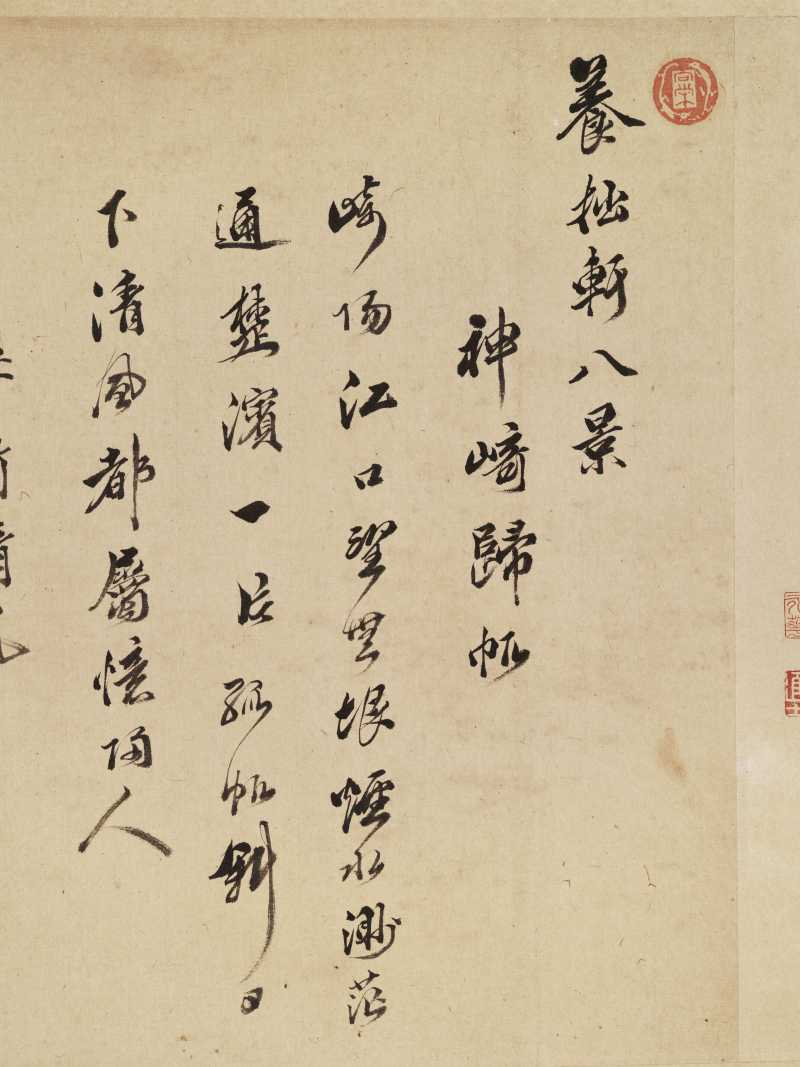 養拙軒八景
神﨑歸帆
崎陽江口望無垠煙水渺茫
通楚濱一片孤帆斜日
下清風都屬憶歸人